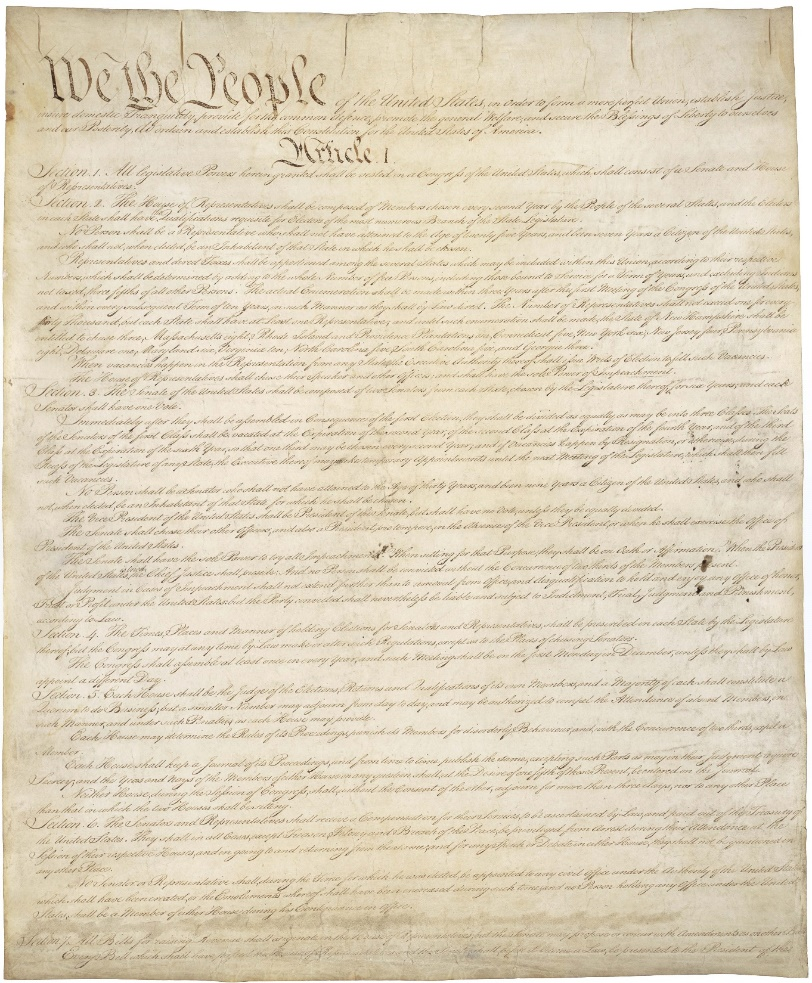 We the People of the United States, in Order to form a more perfect Union, establish Justice,
insure domestic Tranquility, provide for the common defence, promote the general Welfare, and secure the Blessings of Liberty to ourselves
and our Posterity, do ordain and establish this Constitution for the United States of America.
Article. I.
Section. 1. All legislative Powers herein granted shall be vested in a Congress of the United States, which shall consist of a Senate and House
of Representatives.
Section. 2. The House of Representatives shall be composed of Members chosen every second Year by the People of the several States, and the Electors
in each State shall have the Qualifications requisite for Electors of the most numerous Branch of the State Legislature.
No Person shall be a Representative who shall not have attained to the Age of twenty five Years, and been seven Years a Citizen of the United States,
and who shall not, when elected, be an Inhabitant of that State in which he shall be chosen.
Representatives and direct Taxes shall be apportioned among the several States which may be included within this Union, according to their respective
Numbers, which shall be determined by adding to the whole Number of free Persons, including those bound to Service for a Term of Years, and excluding Indians
not taxed, three fifths of all other Persons. The actual Enumeration shall be made within three Years after the first Meeting of the Congress of the United States,
and within every subsequent Term of ten Years, in such Manner as they shall by Law direct. The Number of Representatives shall not exceed one for every
thirty Thousand, but each State shall have at Least one Representative; and until such enumeration shall be made, the State of New Hampshire shall be
entitled to chuse three, Massachusetts eight, Rhode-Island and Providence Plantations one, Connecticut five, New-York six, New Jersey four, Pennsylvania
eight, Delaware one, Maryland six, Virginia ten, North Carolina five, South Carolina five, and Georgia three.
When vacancies happen in the Representation from any State, the Executive Authority thereof shall issue Writs of Election to fill such Vacancies.
The House of Representatives shall chuse their Speaker and other Officers; and shall have the sole Power of Impeachment.
Section. 3. The Senate of the United States shall be composed of two Senators from each State, chosen by the Legislature thereof, for six Years; and each
Senator shall have one Vote.
Immediately after they shall be assembled in Consequence of the first Election, they shall be divided as equally as may be into three Classes. The Seats
of the Senators of the first Class shall be vacated at the Expiration of the second Year, of the second Class at the Expiration of the fourth Year, and of the third
Class at the Expiration of the sixth Year, so that one third may be chosen every second Year; and if Vacancies happen by Resignation, or otherwise, during the
Recess of the Legislature of any State, the Executive thereof may make temporary Appointments until the next Meeting of the Legislature, which shall then fill
such Vacancies.
No Person shall be a Senator who shall not have attained to the Age of thirty Years, and been nine Years a Citizen of the United States, and who shall
not, when elected, be an Inhabitant of that State for which he shall be chosen.
The Vice President of the United States shall be President of the Senate, but shall have no Vote, unless they be equally divided.
The Senate shall chuse their other Officers, and also a President pro tempore, in the Absence of the Vice President, or when he shall exercise the Office of
President of the United States.
The Senate shall have the sole Power to try all Impeachments. When sitting for that Purpose, they shall be on Oath or Affirmation. When the President
of the United States is tried, the Chief Justice shall preside: And no Person shall be convicted without the Concurrence of two thirds of the Members present.
Judgment in Cases of Impeachment shall not extend further than to removal from Office, and disqualification to hold and enjoy any Office of honor,
Trust or Profit under the United States: but the Party convicted shall nevertheless be liable and subject to Indictment, Trial, Judgment and Punishment,
according to Law.
Section. 4. The Times, Places and Manner of holding Elections for Senators and Representatives, shall be prescribed in each State by the Legislature
thereof; but the Congress may at any time by Law make or alter such Regulations, except as to the Places of chusing Senators.
The Congress shall assemble at least once in every Year, and such Meeting shall be on the first Monday in December, unless they shall by Law
appoint a different Day.
Section. 5. Each House shall be the Judge of the Elections, Returns and Qualifications of its own Members, and a Majority of each shall constitute a
Quorum to do Business; but a smaller Number may adjourn from day to day, and may be authorized to compel the Attendance of absent Members, in
such Manner, and under such Penalties as each House may provide.
Each House may determine the Rules of its Proceedings, punish its Members for disorderly Behaviour, and, with the Concurrence of two thirds, expel a
Member.
Each House shall keep a Journal of its Proceedings, and from time to time publish the same, excepting such Parts as may in their Judgment require
Secrecy; and the Yeas and Nays of the Members of either House on any question shall, at the Desire of one fifth of those Present, be entered on the Journal.
Neither House, during the Session of Congress, shall, without the Consent of the other, adjourn for more than three days, nor to any other Place
than that in which the two Houses shall be sitting.
Section. 6. The Senators and Representatives shall receive a Compensation for their Services, to be ascertained by Law, and paid out of the Treasury of
the United States. They shall in all Cases, except Treason, Felony and Breach of the Peace, be privileged from Arrest during their Attendance at the
Session of their respective Houses, and in going to and returning from the same; and for any Speech or Debate in either House, they shall not be questioned in
any other Place.
No Senator or Representative shall, during the Time for which he was elected, be appointed to any civil Office under the Authority of the United States,
which shall have been created, or the Emoluments whereof shall have been encreased during such time; and no Person holding any Office under the United
States, shall be a Member of either House during his Continuance in Office.
Section. 7. All Bills for raising Revenue shall originate in the House of Representatives; but the Senate may propose or concur with Amendments as on other Bills.
Every Bill which shall have passed the House of Representatives and the Senate, shall, before it become a Law, be presented to the President of the